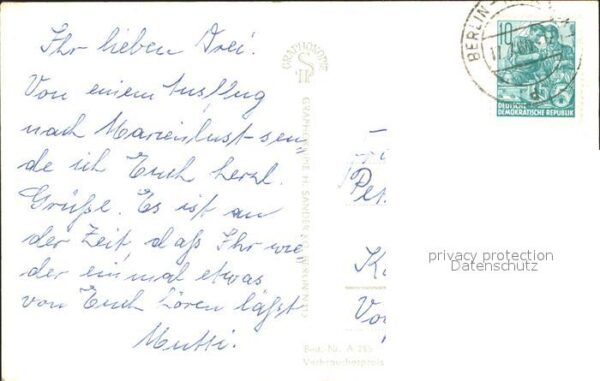 Ihr lieben Drei.
Von einem Ausflug
nach Marienlust sen
de ich Euch herzl.
Grüße. Es ist an
der Zeit, daß Ihr wie
der einmal etwas
von Euch hören läßt
Mutti.
GRAPHOKOPIE
H. SANDER
BERLIN
Best.-Nr. A 785
Verbraucherpreis
BERLIN
10
DEUTSCHE
DEMOKRATISCHE REPUBLIK
Pet
privacy protection
Datenschutz